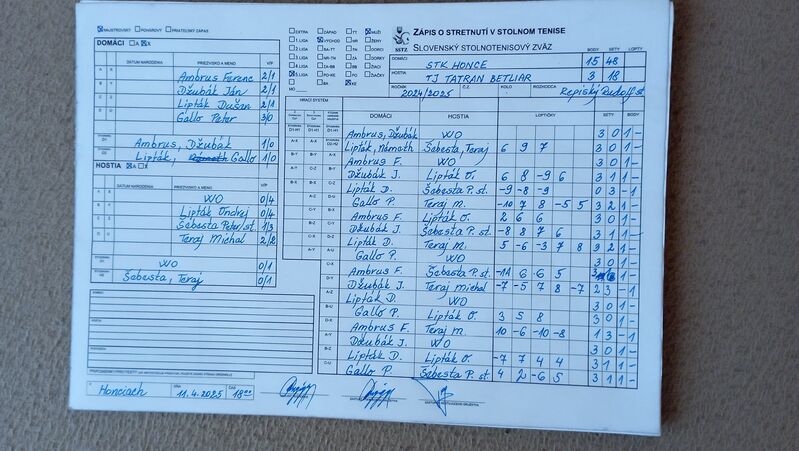 MAJSTROVSKÝ POHÁROVÝ PRIATEĽSKÝ ZÁPAS
DOMÁCI A X
DÁTUM NARODENIA PRIEZVISKO A MENO V/P
Ambrus Ferenc 2/1
Džubák Ján 2/1
Lipták Dušan 2/1
Gallo Peter 3/0
Ambrus, Džubák 1/0
Lipták, Gallo 1/0
HOSTIA A X
DÁTUM NARODENIA PRIEZVISKO A MENO V/P
WO 0/4
Lipták Ondrej 0/4
Šebesta Peter st. 1/3
Teraj Michal 2/2
WO 0/1
Šebesta, Teraj 0/1
Honciach DŇA 11.4.2025 ČAS 18⁰⁰
EXTRA ZÁPAD TT MUŽI
1. LIGA VÝCHOD NR ŽENY
2. LIGA BA-TT TN DORCI
3. LIGA NR-TN ZA DORKY
4. LIGA ZA-BB BB ŽIACI
5. LIGA PO-KE PO ŽIAČKY
BA KE
MO
SSTZ
ZÁPIS O STRETNUTÍ V STOLNOM TENISE
SLOVENSKÝ STOLNOTENISOVÝ ZVÄZ
BODY SETY LOPTY
DOMÁCI STK HONCE 15 48
HOSTIA TJ TATRAN BETLIAR 3 18
ROČNÍK 2024/2025 Č.Z. KOLO ROZHODCA Repiský Rudolf st.
HRACÍ SYSTÉM DOMÁCI HOSTIA LOPTIČKY SETY
Ambrus, Džubák WO 3 0 1 -
Lipták, Németh Šebesta, Teraj 6 9 7 3 0 1 -
Ambrus F. WO 3 0 1 -
Džubák J. Lipták O. 6 8 -9 6 3 1 1 -
Lipták D. Šebesta P. st. -9 -8 -9 0 3 - 1
Gallo P. Teraj M. -10 7 8 -5 5 3 2 1 -
Ambrus F. Lipták O. 2 6 6 3 0 1 -
Džubák J. Šebesta P. st. -8 8 7 6 3 1 1 -
Lipták D. Teraj M. 5 -6 -3 7 8 3 2 1 -
Gallo P. WO 3 0 1 -
Ambrus F. Šebesta P. st. -14 6 6 5 3 1 -
Džubák J. Teraj Michal -7 -5 7 8 -7 2 3 - 1
Lipták D. WO 3 0 1 -
Gallo P. Lipták O. 3 5 8 3 0 1 -
Ambrus F. Teraj M. 10 -6 -10 -8 1 3 - 1
Džubák J. WO 3 0 1 -
Lipták D. Lipták O. -7 7 4 4 3 1 1 -
Gallo P. Šebesta P. st. 4 2 -6 5 3 1 1 -